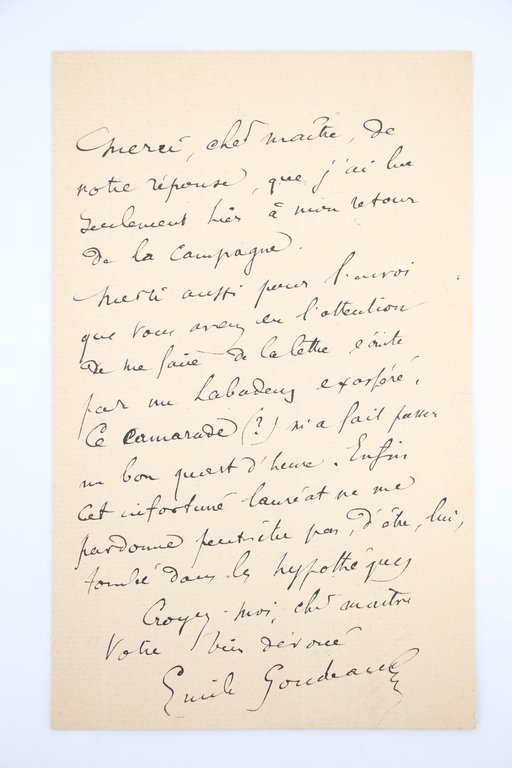 Merci, cher maître, de
votre réponse, que j'ai lue
seulement hier à mon retour
de la campagne.
Merci aussi pour l'envoi
que vous avez eu l'attention
de me faire de la lettre écrite
par un Labadens exaspéré.
Ce camarade (?) m'a fait passer
un bon quart d'heure. Enfin
cet infortuné lauréat ne me
pardonne peut-être pas, d'être, lui,
tombé dans les hypothèques
Croyez-moi, cher maître
Votre bien dévoué
Emile Goudeau